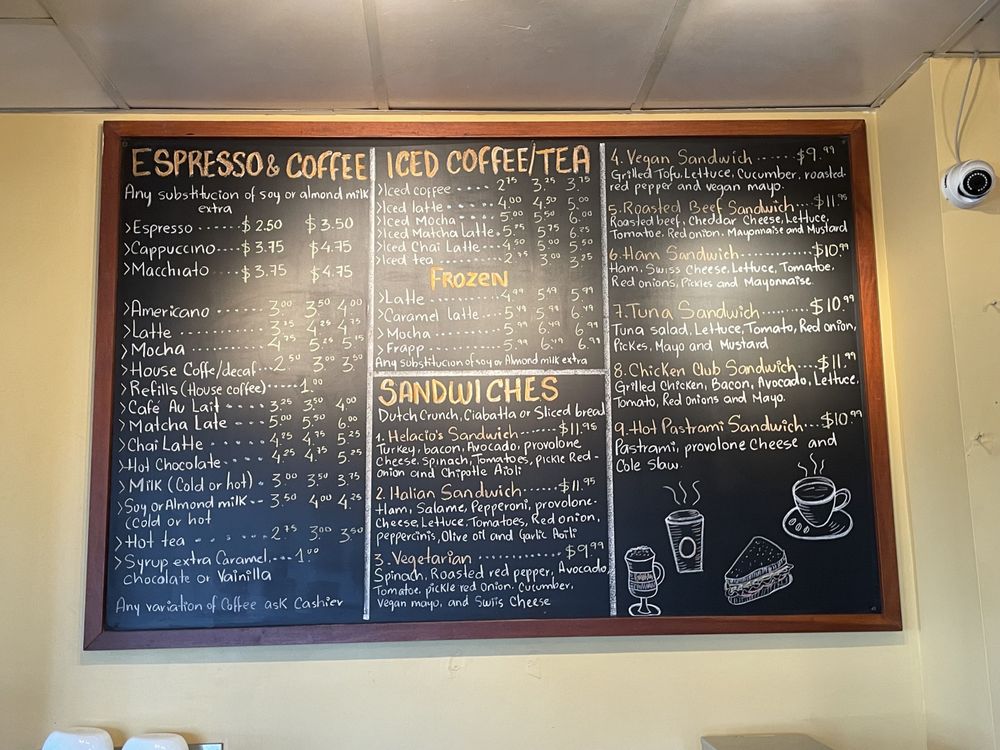 ESPRESSO & COFFEE
Any substitucion of soy or almond milk
extra
>Espresso ----- $2.50 $3.50
>Cappuccino ---- $3.75 $4.75
>Macchiato ---- $3.75 $4.75
>Americano ---- 3.00 3.50 4.00
>Latte ---- 3.75 4.25 4.75
>Mocha ---- 4.75 5.25 5.75
>House Coffe/decaf -- 2.50 3.00 3.50
>Refills (House coffee) --- 1.00
>Café Au Lait ---- 3.25 3.50 4.00
>Matcha Late ---- 5.00 5.50 6.00
>Chai Latte ---- 4.25 4.75 5.25
>Hot Chocolate ---- 4.25 4.75 5.25
>Milk (Cold or hot) - 3.00 3.50 3.75
>Soy or Almond milk -- 3.50 4.00 4.25
(Cold or hot
>Hot tea ---- 2.75 3.00 3.50
>Syrup extra Caramel ---- 1.00
chocolate or Vainilla
Any variation of Coffee ask Cashier
ICED COFFEE/TEA
>Iced coffee ---- 2.75 3.25 3.75
>Iced latte ---- 4.00 4.50 5.00
>Iced Mocha ---- 5.00 5.50 6.00
>Iced Matcha Latte . 5.25 5.75 6.25
>Iced Chai Latte --- 4.50 5.00 5.50
>Iced tea ---- 2.75 3.00 3.25
FROZEN
>Latte ---- 4.99 5.49 5.99
>Caramel latte ---- 5.49 5.99 6.49
>Mocha ---- 5.99 6.49 6.99
>Frapp ---- 5.99 6.49 6.99
Any substitucion of soy or Almond milk extra
SANDWICHES
Dutch Crunch, Ciabatta or Sliced bread
1. Helacio's Sandwich ------ $11.95
Turkey, bacon, Avocado, provolone
Cheese, Spinach, Tomatoes, pickle Red-
onion and Chipotle Aioli
2. Italian Sandwich ------ $11.95
Ham, Salame, Pepperoni, provolone-
Cheese, Lettuce, Tomatoes, Red onion,
peppercinis, Olive oil and Garlic Aoili
3. Vegetarian ---------- $9.99
Spinach, Roasted red pepper, Avocado,
Tomatoe, pickle red onion, Cucumber,
Vegan mayo, and Swiis Cheese
4. Vegan Sandwich ------ $9.99
Grilled Tofu, Lettuce, Cucumber, roasted-
red pepper and vegan mayo.
5. Roasted Beef Sandwich ---- $11.95
Roasted beef, Cheddar Cheese, Lettuce,
Tomatoe, Red onion, Mayonnaise and Mustard
6. Ham Sandwich ---------- $10.99
Ham, Swiss Cheese, Lettuce, Tomatoe,
Red onions, Pickles and Mayonnaise.
7. Tuna Sandwich ------ $10.99
Tuna salad, Lettuce, Tomato, Red onion,
Pickes, Mayo and Mustard
8. Chicken Club Sandwich ---- $11.99
Grilled Chicken, Bacon, Avocado, Lettuce,
Tomato, Red Onions and Mayo.
9. Hot Pastrami Sandwich ---- $10.99
Pastrami, provolone Cheese and
Cole slaw.